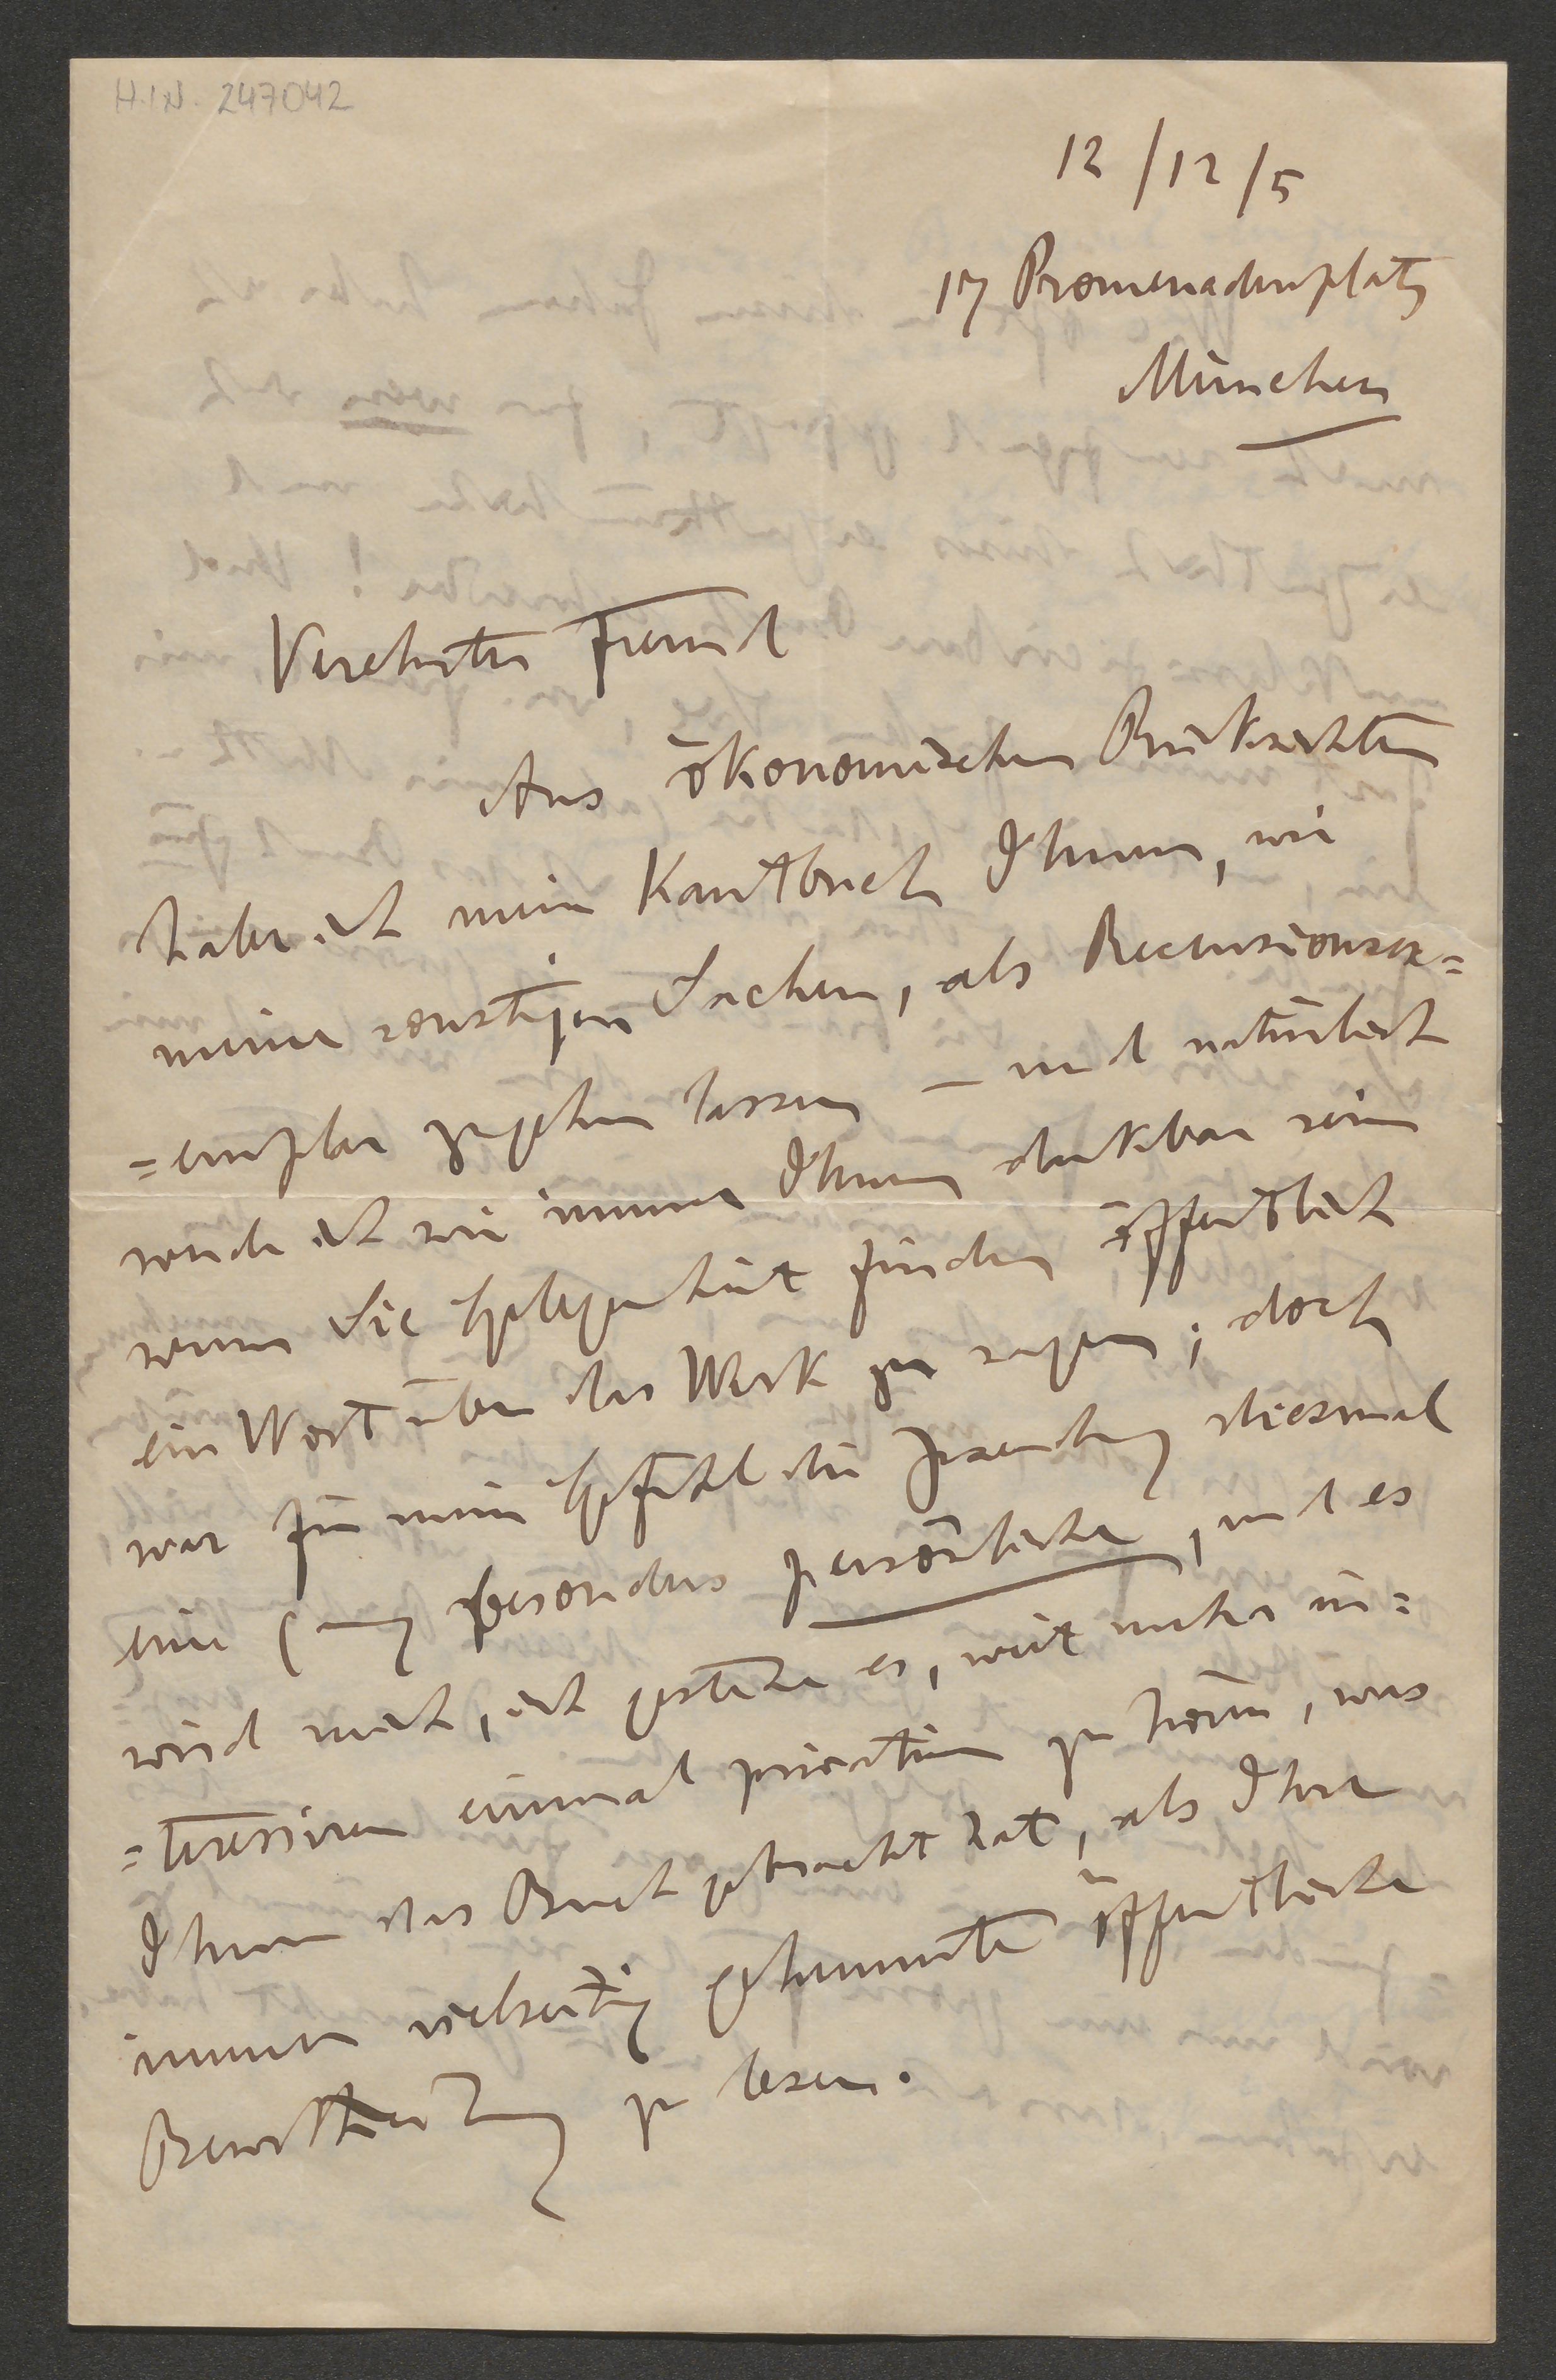 H.I.N. 247042
12/12/5
17 Promenadenplatz
München
Verehrter Freund
Aus ökonomischen Rücksichten
habe ich mein Kantbuch Ihnen, wie
meine sonstigen Sachen, als Recensionsex=
=emplar zugehen lassen – und natürlich
werde ich wie immer Ihnen dankbar sein
wenn Sie Gelegenheit finden öffentlich
ein Wort über das Werk zu sagen; doch
war für mein Gefühl die Zusendung diesmal
eine ganz besonders persönliche, und es
wird mich, ich gestehe es, weit mehr in=
=teressiren einmal privatim zu hören, was
Ihnen das Buch gebracht hat, als Ihre
immer vielseitig gehemmte öffentliche
Beurtheilung zu lesen.